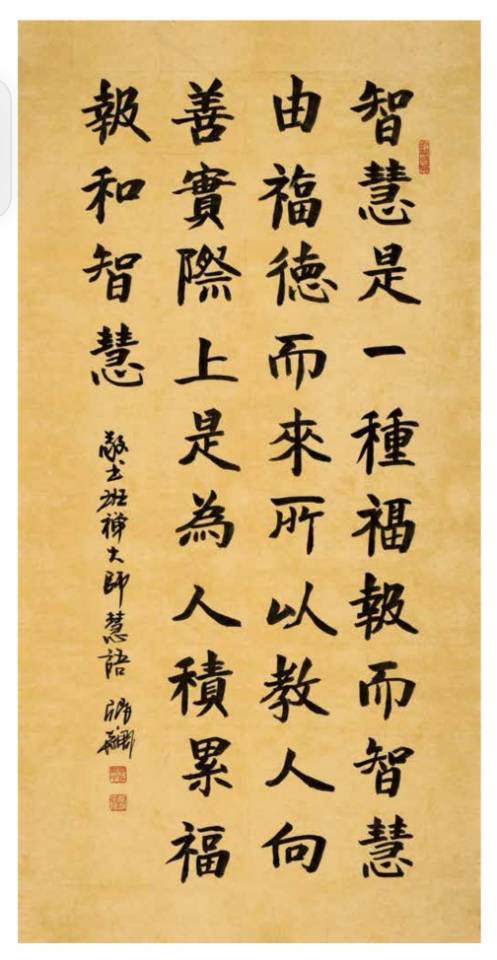 智慧是一種福報而智慧
由福德而來所以教人向
善實際上是為人積累福
報和智慧
敬書班禪大師慧語